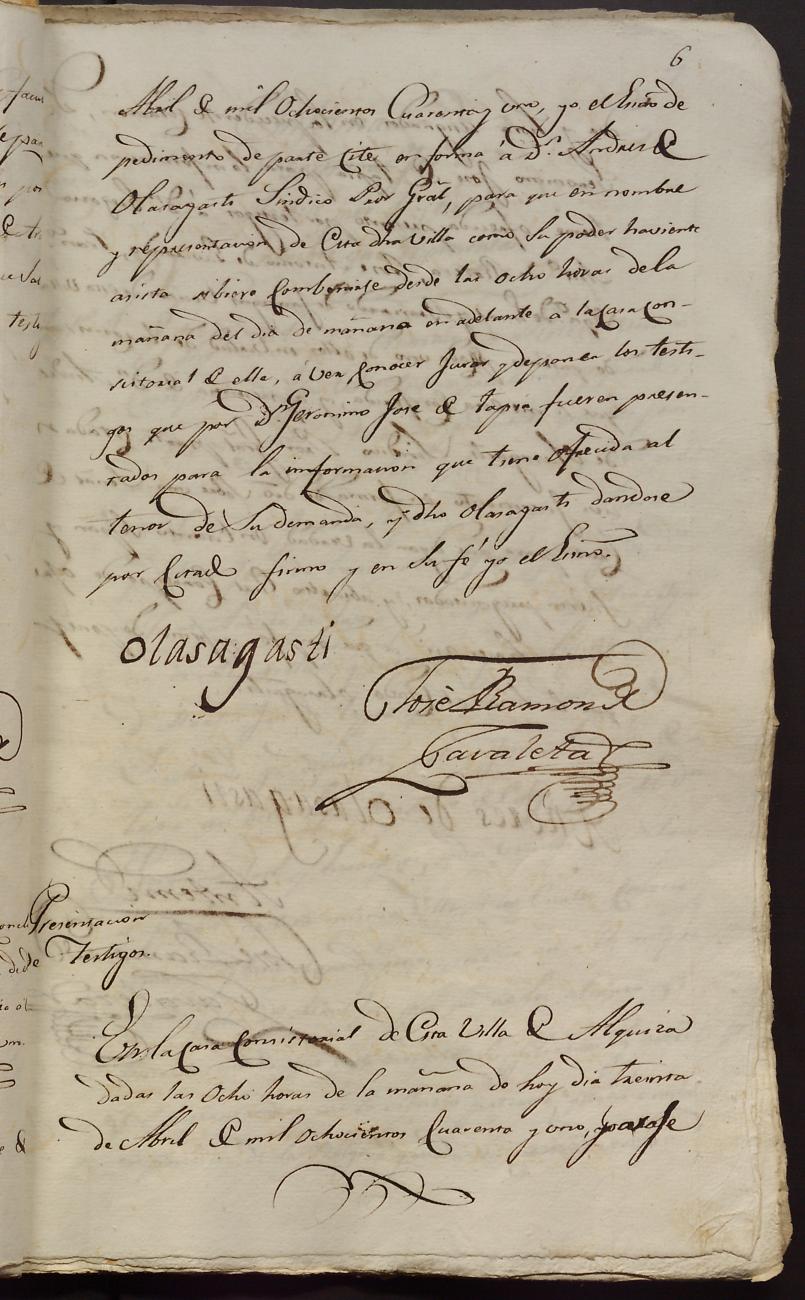 6
Abril de mil ochocientos Cuarenta y uno, yo el Esno de
pedimento de parte Cité en forma á Dn. Andres de
Olasagasti Sindico Pror Gral, para que en nombre
y representacion de Esta dha Villa como su poder haviente
asista si biere Combenirle desde las ocho horas de la
mañana del dia de mañana en adelante á la Casa Con-
sistorial de ella, á ver Conocer Jurar y deponer los testi-
gos que por Dn. Geronimo Jose de Tapia fueren presen-
tados para la informacion que tiene ofrecida al
tenor de Su demanda, y dho Olasagasti dandose
por Citado firmo y en su fé yo el Esno.
Olasagasti
José Ramon de
Zavaleta
Presentacion
de Testigos.
En la Casa Consistorial de Esta Villa de Alquiza
dadas las Ocho horas de la mañana de hoy dia treinta
de Abril de mil ochocientos Cuarenta y uno, paraje